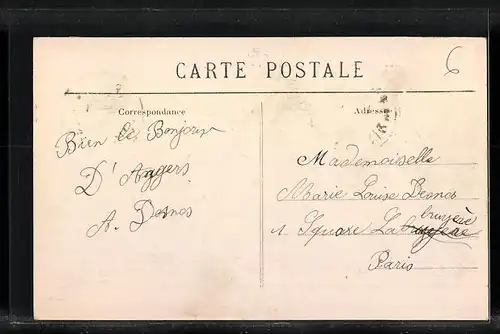 CARTE POSTALE
6
Correspondance
Adresse
Bien le Bonjour
D'Angers
A. Desnos
Mademoiselle
Marie Louise Desnos
bruyère
1. Square La
Paris